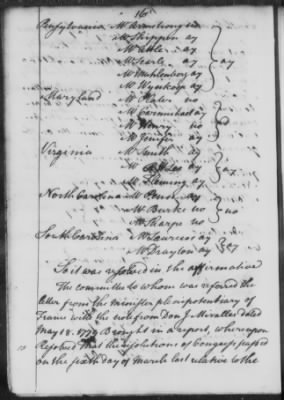 16
Pensylvania Mr Armstrong no
Mr Shippen ay
Mr Atlee ay
Mr Searle ay } ay
Mr Muhlenberg ay
Mr Wynkoop ay
Maryland Mr Plater no
Mr Carmichael ay
Mr Henry no } d
Mr Jenifer ay
Virginia Mr Smith ay
Mr ay } ay
Mr Fleming ay
North Carolina Mr Penn ay
Mr Burke no } no
Mr Sharpe no
South Carolina Mr Laurens ay } ay
Mr Drayton ay
So it was resolved in the affirmative
The committee to whom was refered the
letter from the minister plenipotentiary of
France with the note from Don J. Miralles dated
May 18. 1779 Brought in a report, whereupon
Resolved That the resolutions of Congress passed
on the sixth day of March last relative to the